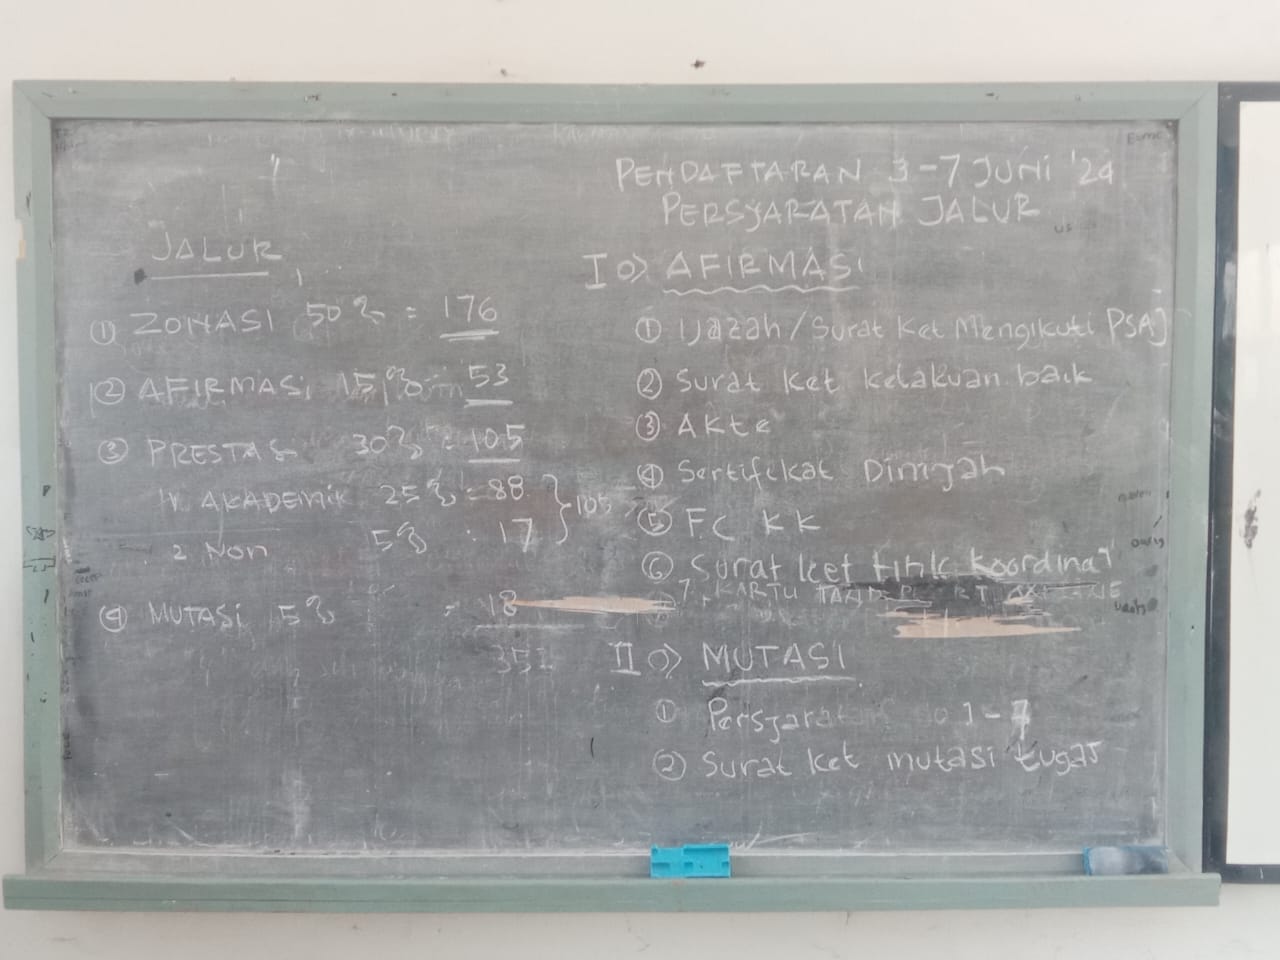 JALUR
① ZONASI 50% = 176
② AFIRMASI 15% = 53
③ PRESTASI 30% = 105
1. AKADEMIK 25% = 88
2 Non 5% : 17
} 105
④ MUTASI 5% = 18
352
PENDAFTARAN 3-7 JUNI '24
PERSYARATAN JALUR
I => AFIRMASI
① Ijazah / Surat Ket Mengikuti PSAJ
② Surat Ket Kelakuan baik
③ Akte
④ Sertifikat Diniyah
⑤ F.C KK
⑥ Surat Ket titik koordinat
7. KARTU
II => MUTASI
① Persyaratan no 1-7
② Surat Ket mutasi tugas